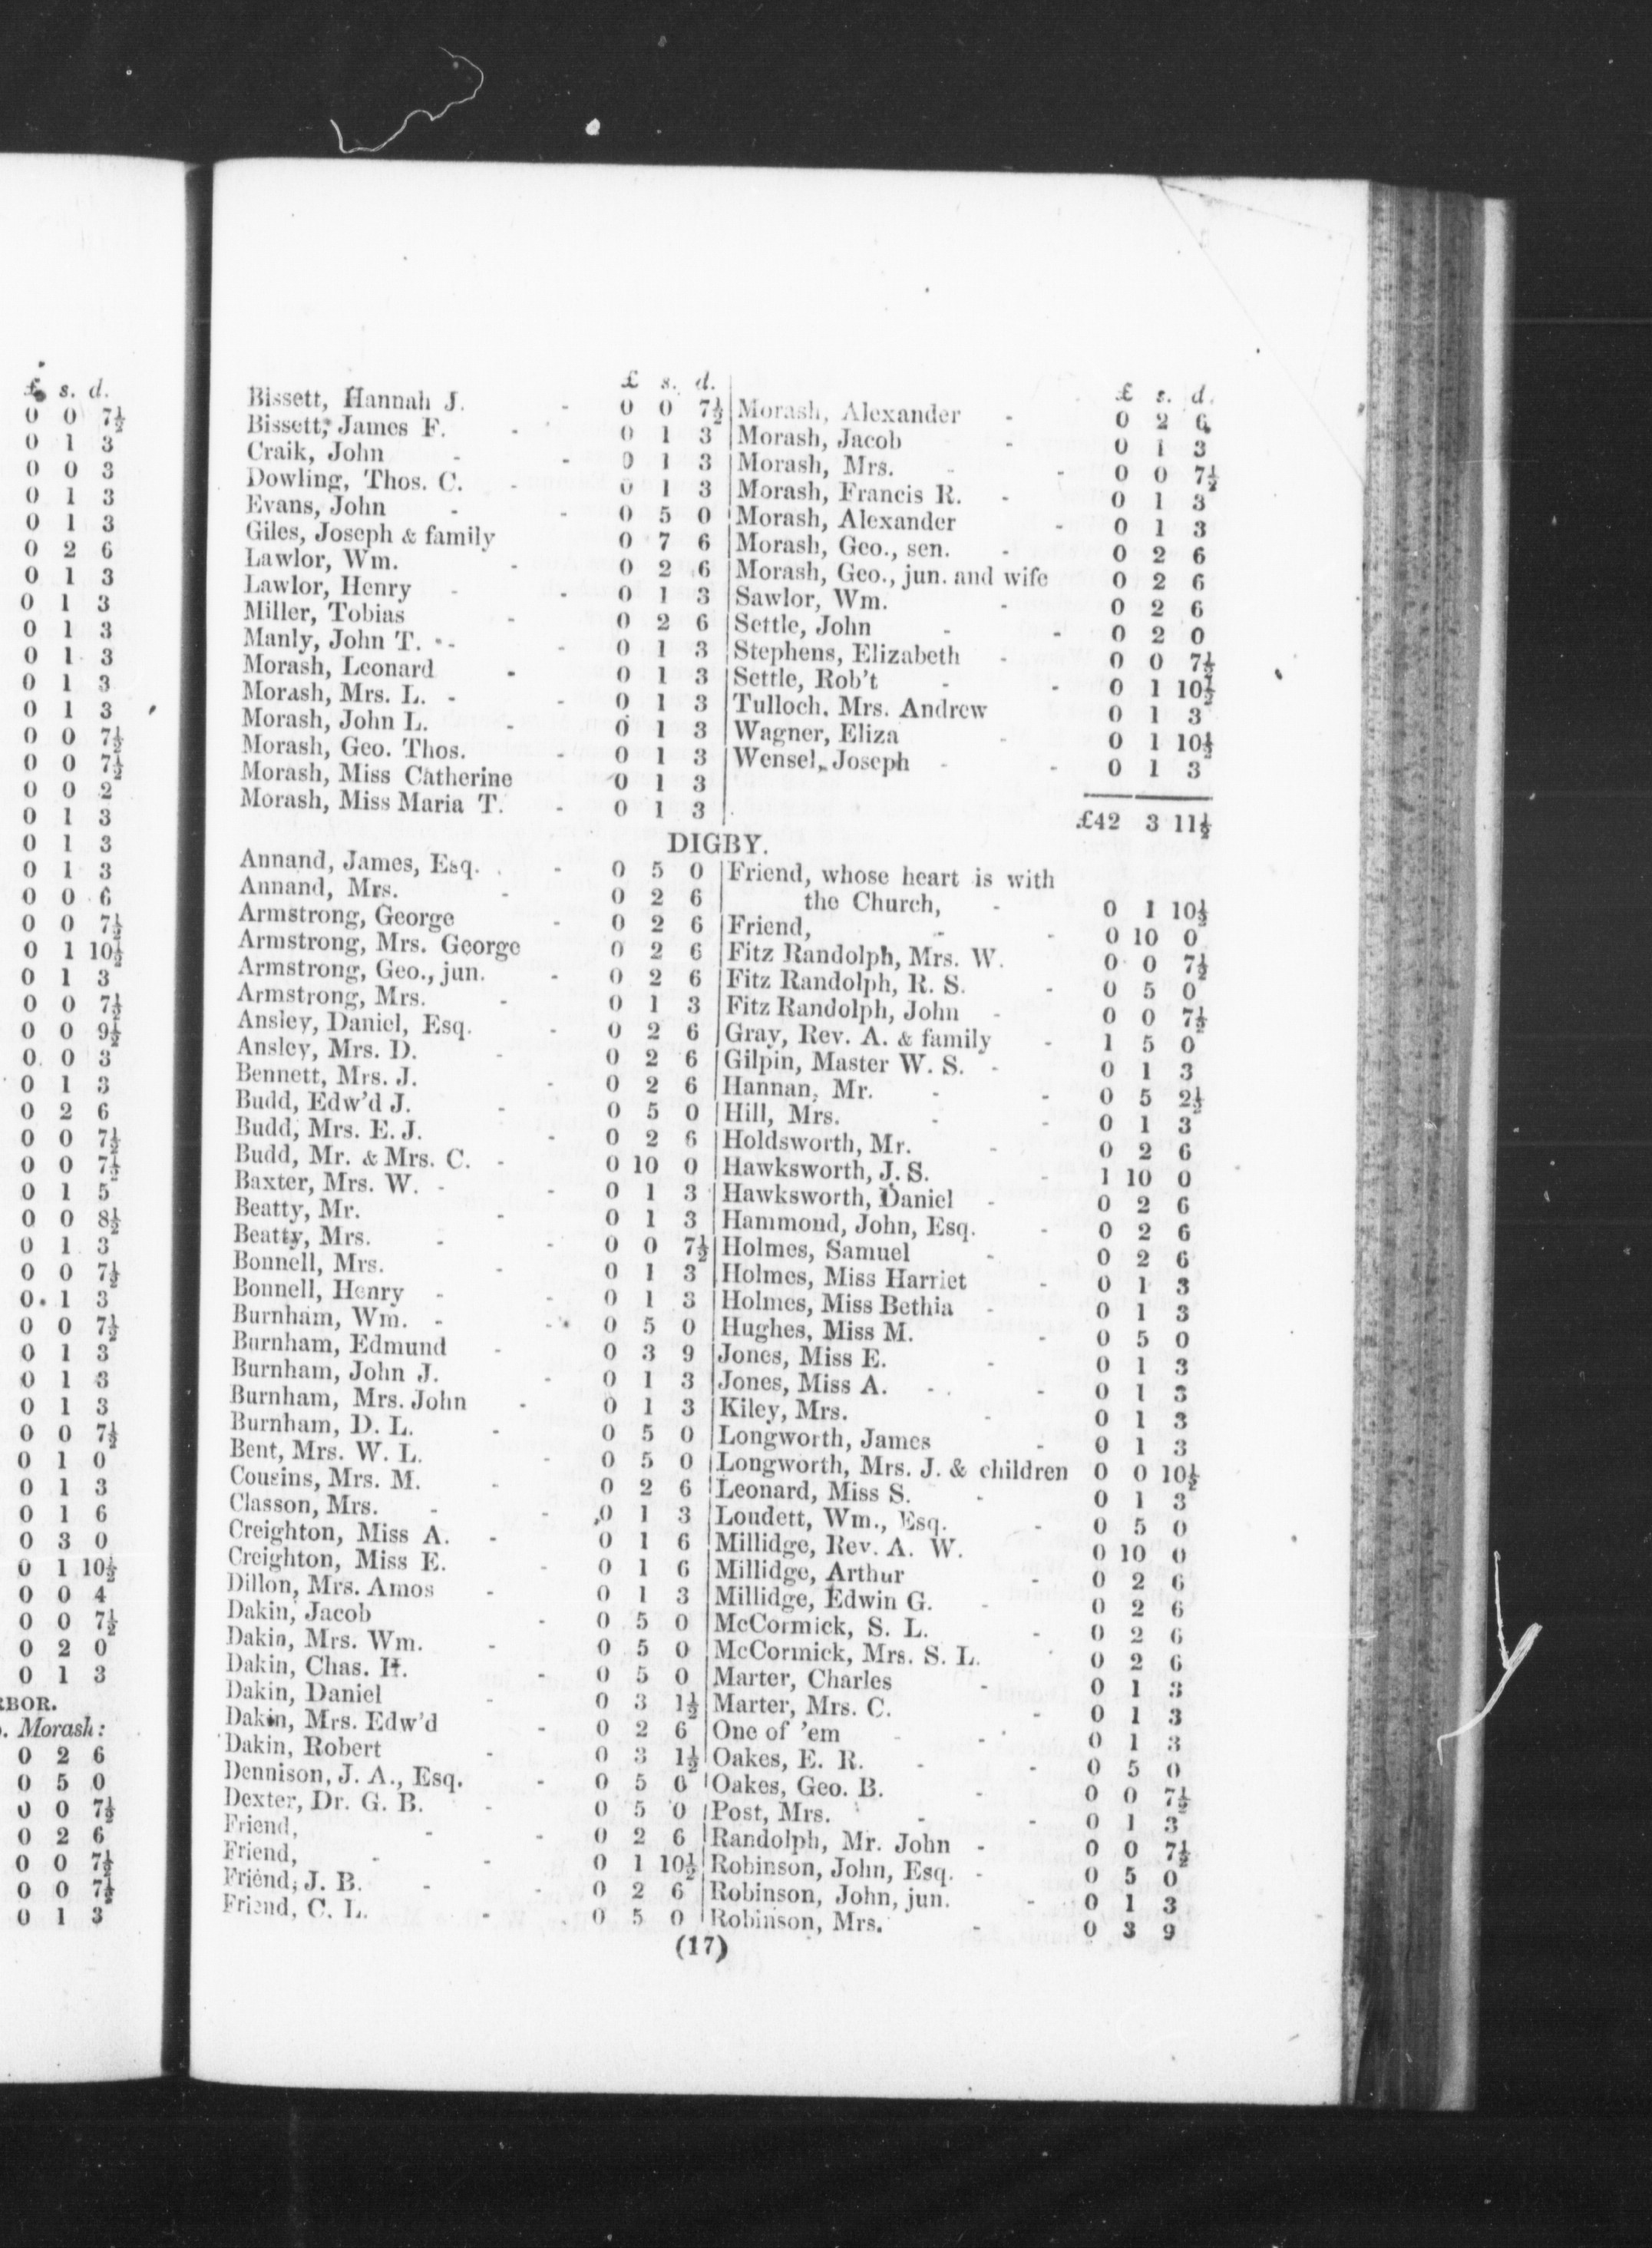 £ s. d.
0 0 7½
0 1 3
0 0 3
0 1 3
0 1 3
0 2 6
0 1 3
0 1 3
0 1 3
0 1 3
0 1 3
0 1 3
0 0 7½
0 0 7½
0 0 2
0 1 3
0 1 3
0 1 3
0 0 6
0 0 7½
0 1 10½
0 1 3
0 0 7½
0 0 9½
0 0 3
0 1 3
0 2 6
0 0 7½
0 0 7½
0 1 5
0 0 8½
0 1 3
0 0 7½
0 1 3
0 0 7½
0 1 3
0 1 3
0 1 3
0 0 7½
0 1 0
0 1 3
0 1 6
0 3 0
0 1 10½
0 0 4
0 0 7½
0 2 0
0 1 3
RBOR.
. Morash:
0 2 6
0 5 0
0 0 7½
0 2 6
0 0 7½
0 0 7½
0 1 3
£ s. d.
Bissett, Hannah J. - 0 0 7½
Bissett, James F. - 0 1 3
Craik, John - - 0 1 3
Dowling, Thos. C. - 0 1 3
Evans, John - - 0 5 0
Giles, Joseph & family 0 7 6
Lawlor, Wm. - 0 2 6
Lawlor, Henry - - 0 1 3
Miller, Tobias - 0 2 6
Manly, John T. - - 0 1 3
Morash, Leonard - 0 1 3
Morash, Mrs. L. - - 0 1 3
Morash, John L. - 0 1 3
Morash, Geo. Thos. - 0 1 3
Morash, Miss Catherine 0 1 3
Morash, Miss Maria T. - 0 1 3
£ s. d.
Morash, Alexander - 0 2 6
Morash, Jacob - 0 1 3
Morash, Mrs. - - 0 0 7½
Morash, Francis R. - 0 1 3
Morash, Alexander - 0 1 3
Morash, Geo., sen. - 0 2 6
Morash, Geo., jun. and wife 0 2 6
Sawlor, Wm. - 0 2 6
Settle, John - - 0 2 0
Stephens, Elizabeth - 0 0 7½
Settle, Rob't - - 0 1 10½
Tulloch, Mrs. Andrew 0 1 3
Wagner, Eliza - 0 1 10½
Wensel, Joseph - - 0 1 3
£42 3 11½
DIGBY.
Annand, James, Esq. - 0 5 0
Annand, Mrs. - 0 2 6
Armstrong, George - 0 2 6
Armstrong, Mrs. George 0 2 6
Armstrong, Geo., jun. - 0 2 6
Armstrong, Mrs. - 0 1 3
Ansley, Daniel, Esq. - 0 2 6
Ansley, Mrs. D. - 0 2 6
Bennett, Mrs. J. - 0 2 6
Budd, Edw'd J. - 0 5 0
Budd, Mrs. E. J. - 0 2 6
Budd, Mr. & Mrs. C. - 0 10 0
Baxter, Mrs. W. - - 0 1 3
Beatty, Mr. - 0 1 3
Beatty, Mrs. - - 0 0 7½
Bonnell, Mrs. - 0 1 3
Bonnell, Henry - - 0 1 3
Burnham, Wm. - - 0 5 0
Burnham, Edmund - 0 3 9
Burnham, John J. - 0 1 3
Burnham, Mrs. John - 0 1 3
Burnham, D. L. - 0 5 0
Bent, Mrs. W. L. - 0 5 0
Cousins, Mrs. M. - 0 2 6
Classon, Mrs. - - 0 1 3
Creighton, Miss A. - 0 1 6
Creighton, Miss E. - 0 1 6
Dillon, Mrs. Amos - 0 1 3
Dakin, Jacob - 0 5 0
Dakin, Mrs. Wm. - 0 5 0
Dakin, Chas. H. - 0 5 0
Dakin, Daniel - 0 3 1½
Dakin, Mrs. Edw'd - 0 2 6
Dakin, Robert - 0 3 1½
Dennison, J. A., Esq. - 0 5 0
Dexter, Dr. G. B. - 0 5 0
Friend, - - 0 2 6
Friend, - - 0 1 10½
Friend, J. B. - - 0 2 6
Friend, C. L. - 0 5 0
Friend, whose heart is with
the Church, - 0 1 10½
Friend, - - 0 10 0
Fitz Randolph, Mrs. W. 0 0 7½
Fitz Randolph, R. S. - 0 5 0
Fitz Randolph, John - 0 0 7½
Gray, Rev. A. & family - 1 5 0
Gilpin, Master W. S. - 0 1 3
Hannan, Mr. - - 0 5 2½
Hill, Mrs. - - 0 1 3
Holdsworth, Mr. - 0 2 6
Hawksworth, J. S. - 1 10 0
Hawksworth, Daniel - 0 2 6
Hammond, John, Esq. - 0 2 6
Holmes, Samuel - 0 2 6
Holmes, Miss Harriet - 0 1 3
Holmes, Miss Bethia - 0 1 3
Hughes, Miss M. - 0 5 0
Jones, Miss E. - 0 1 3
Jones, Miss A. - - 0 1 3
Kiley, Mrs. - 0 1 3
Longworth, James - 0 1 3
Longworth, Mrs. J. & children 0 0 10½
Leonard, Miss S. - 0 1 3
Loudett, Wm., Esq. - 0 5 0
Millidge, Rev. A. W. 0 10 0
Millidge, Arthur - 0 2 6
Millidge, Edwin G. - 0 2 6
McCormick, S. L. - 0 2 6
McCormick, Mrs. S. L. 0 2 6
Marter, Charles - 0 1 3
Marter, Mrs. C. - 0 1 3
One of 'em - - 0 1 3
Oakes, E. R. - - 0 5 0
Oakes, Geo. B. - 0 0 7½
Post, Mrs. - - 0 1 3
Randolph, Mr. John - 0 0 7½
Robinson, John, Esq. - 0 5 0
Robinson, John, jun. - 0 1 3
Robinson, Mrs. - 0 3 9
(17)